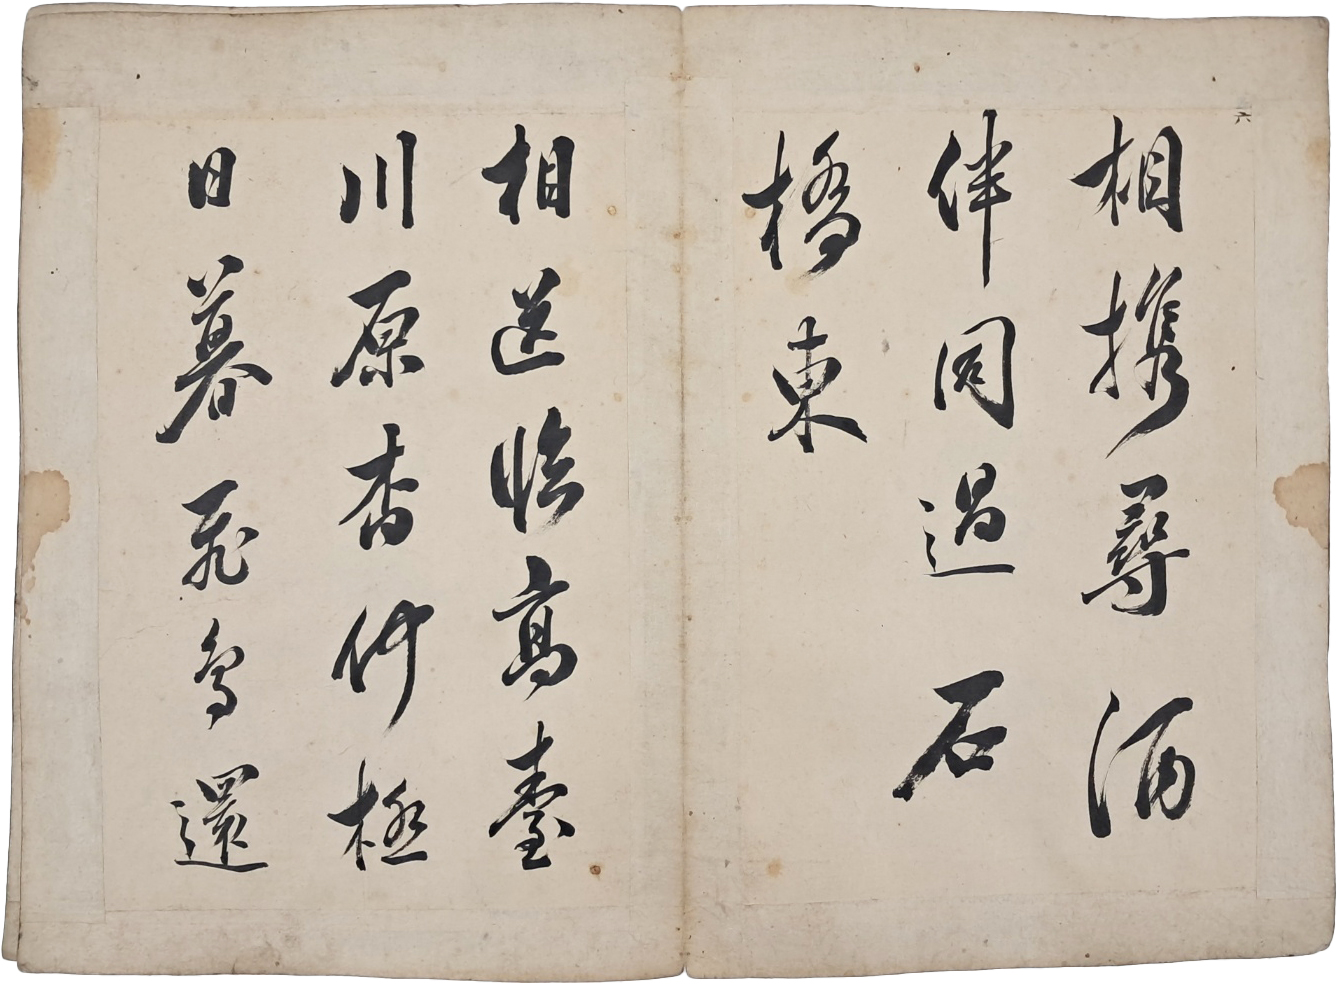 六
相携尋酒
伴同過石
橋東
相送臨高臺
川原杳何極
日暮飛鳥還